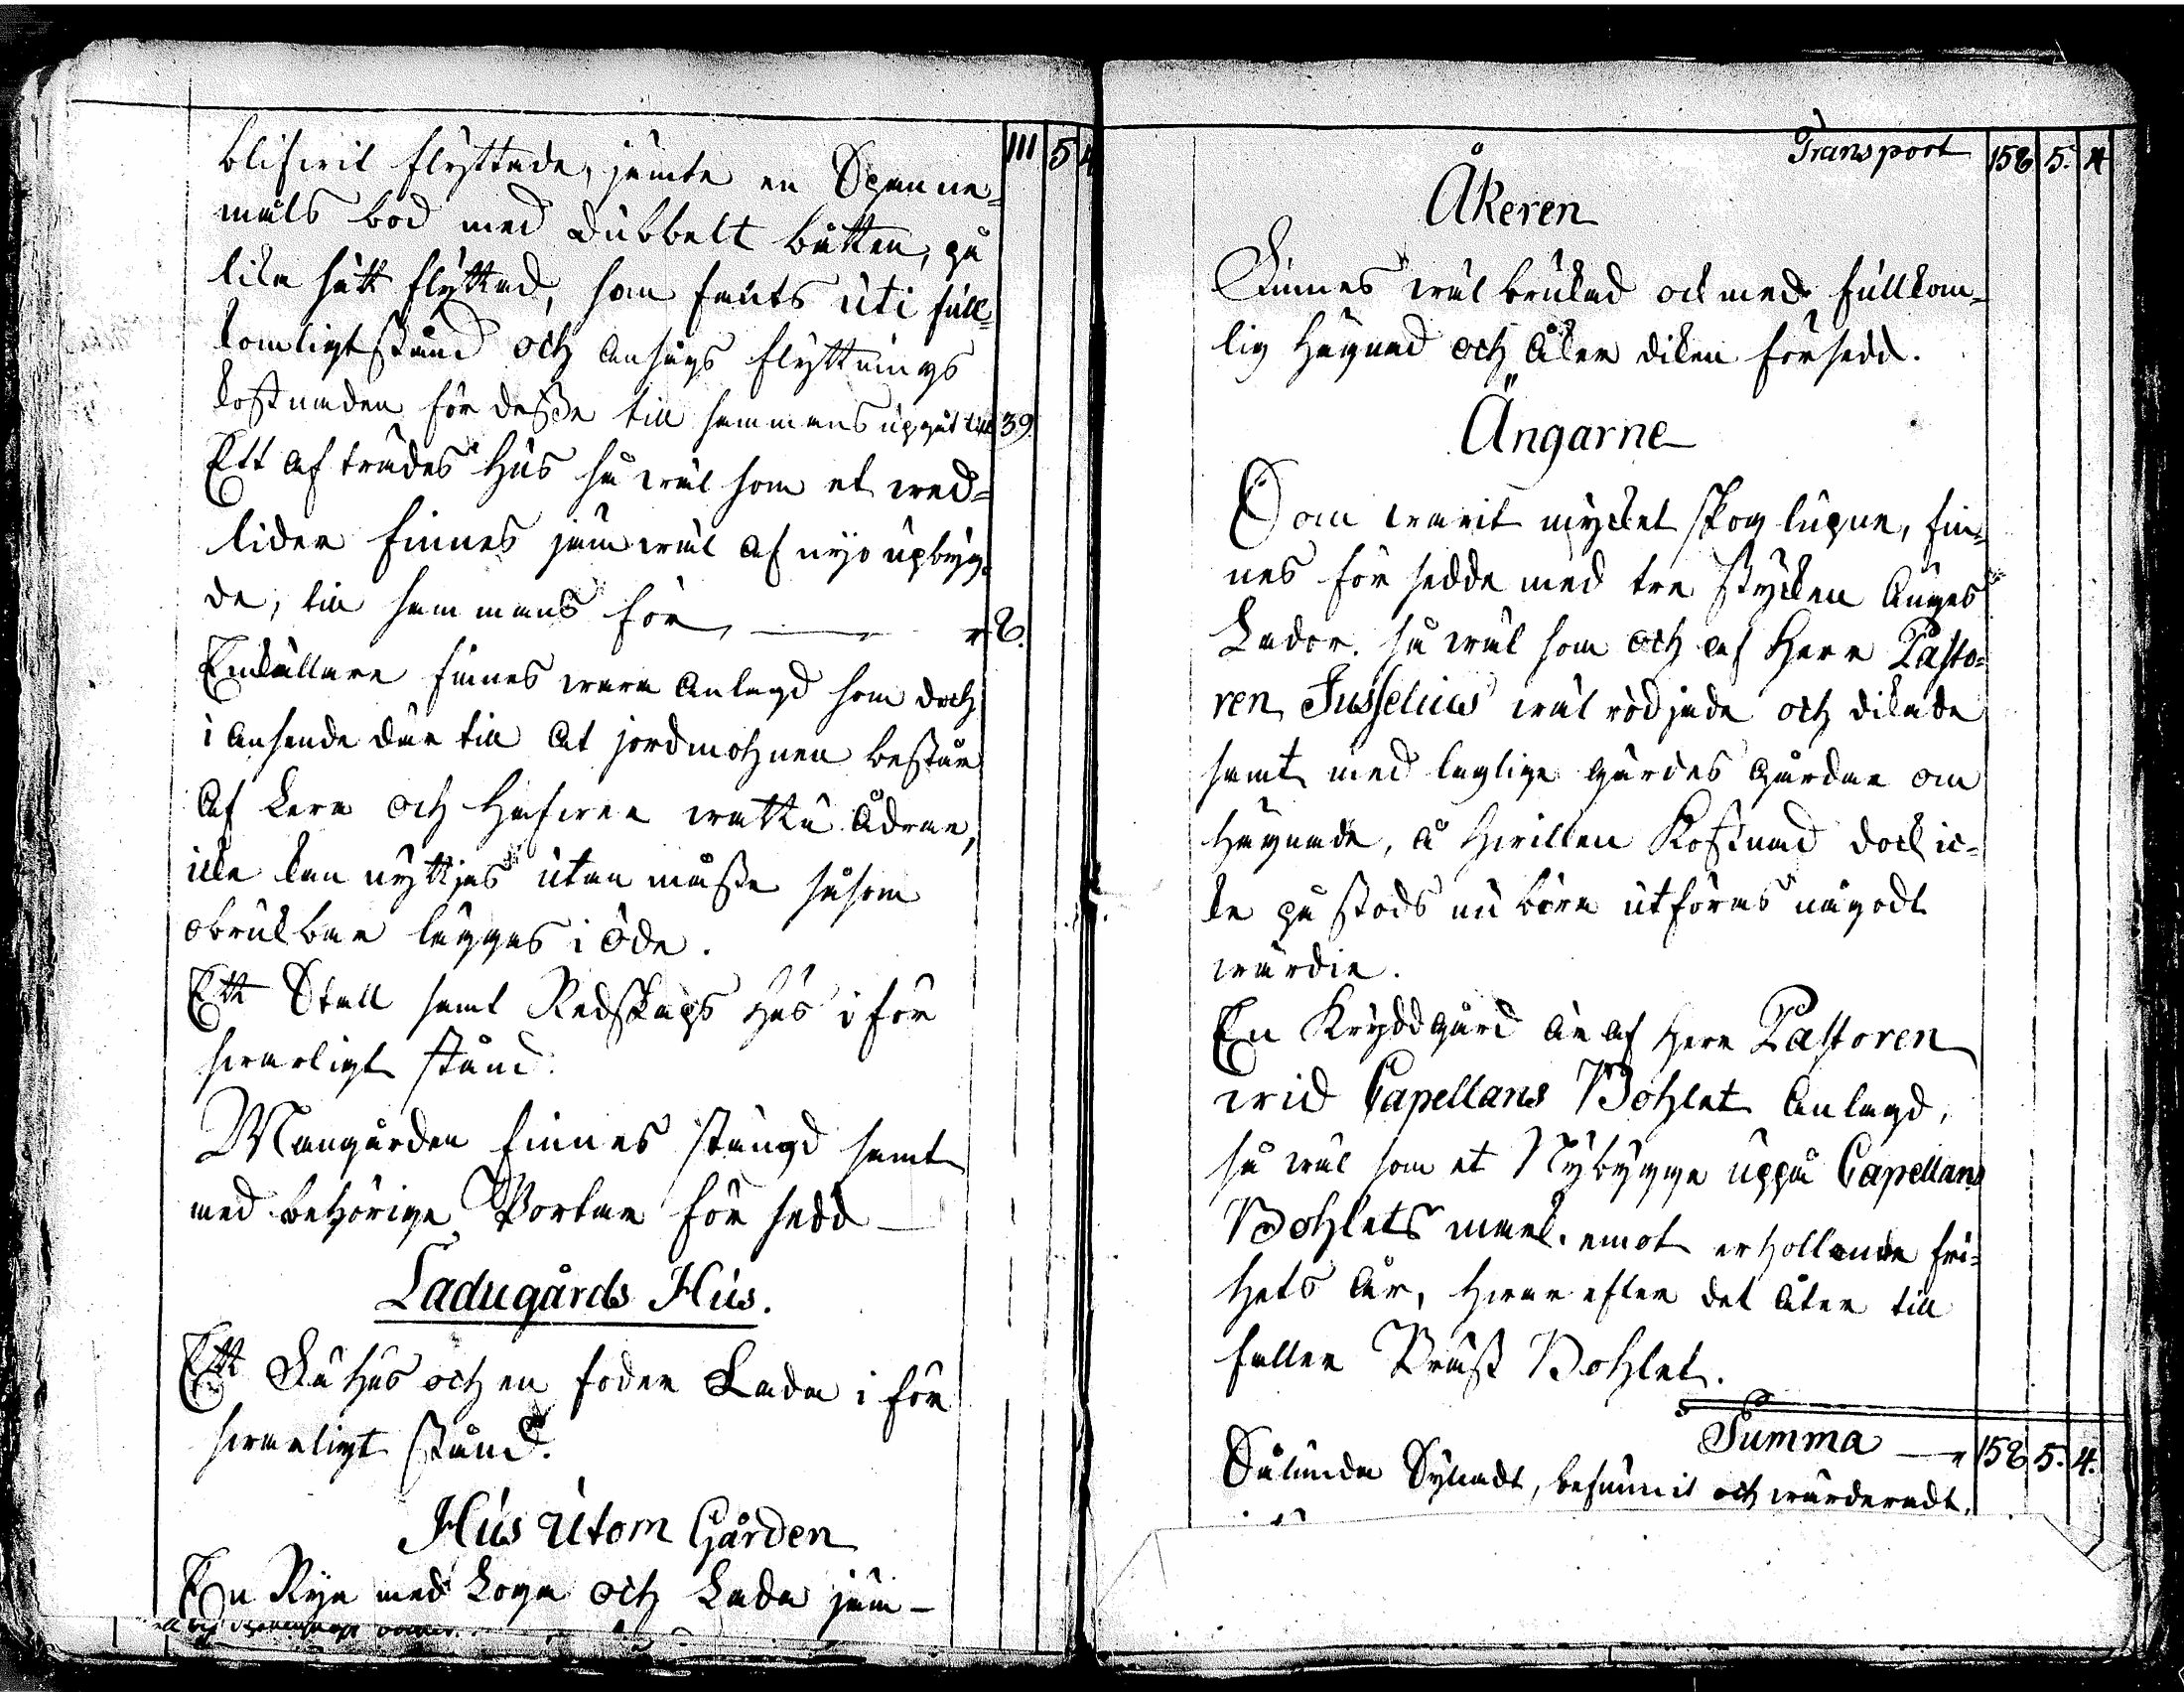 111 5 4
blifwit flyttade, jämte en Spanne-
måls bod med dubbelt båtten, på
lika sätt flyttad, som fants uti full-
komligt stånd och ansågs flyttnings
kostnaden för desse till sammans upgåt till 39.
Ett af trädes Hus så wäl som et wed-
lider finnes jämwäl af nyo upbyg-
de, till sammans för — 8.
En källare finnes wara anlagd som doch
i anseende där till at jordmohnen består
af Lera och Hafwer wattu ådror,
icke kan nyttjas utan måste såsom
obrukbar lägges i öde.
Ett Stall samt Redskaps Hus i för
swarligt stånd.
Mangården finnes stängd samt
med behörige Portar för sedd
Ladugårds Hus.
Ett Fä Hus och en foder Lada i för
swarligt stånd.
Hus utom Gården
En Rya med Loga och Lada jäm-
Transport 158 5. 4
Åkeren
Finnes wäl brukad och med fullkom-
lig Hägnad och Åker diken försedd.
Ängarne
Som warit mycket skog lupne, fin-
nes för sedde med tre stycken Ängs
Lador. så wäl som och af Herr Pasto-
ren Jusselius wäl rödjade och dikade
samt med laglige gärdes gårdar om
Hägnade, å Hwilken Kostnad dock ic-
ke på stods nu böra utföras något
wärdie.
En Krydd gård är af Herr Pastoren
wid Capellans Bohlet anlagd,
så wäl som et Nybygge uppå Capellans
Bohlets mark. emot erhollande fri-
hets År, Hwar efter det åter till
faller Präst Bohlet.
Summa — 158 5. 4.
Sålunda Synadt, befunnit och wärderadt,